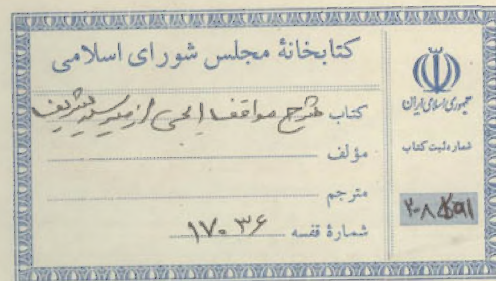 کتابخانهٔ مجلس شورای اسلامی
کتاب شرح مواقف ایجی از میر سید شریف
مؤلف
مترجم
شمارهٔ قفسه ۱۷۰۳۶
جمهوری اسلامی ایران
شماره ثبت کتاب